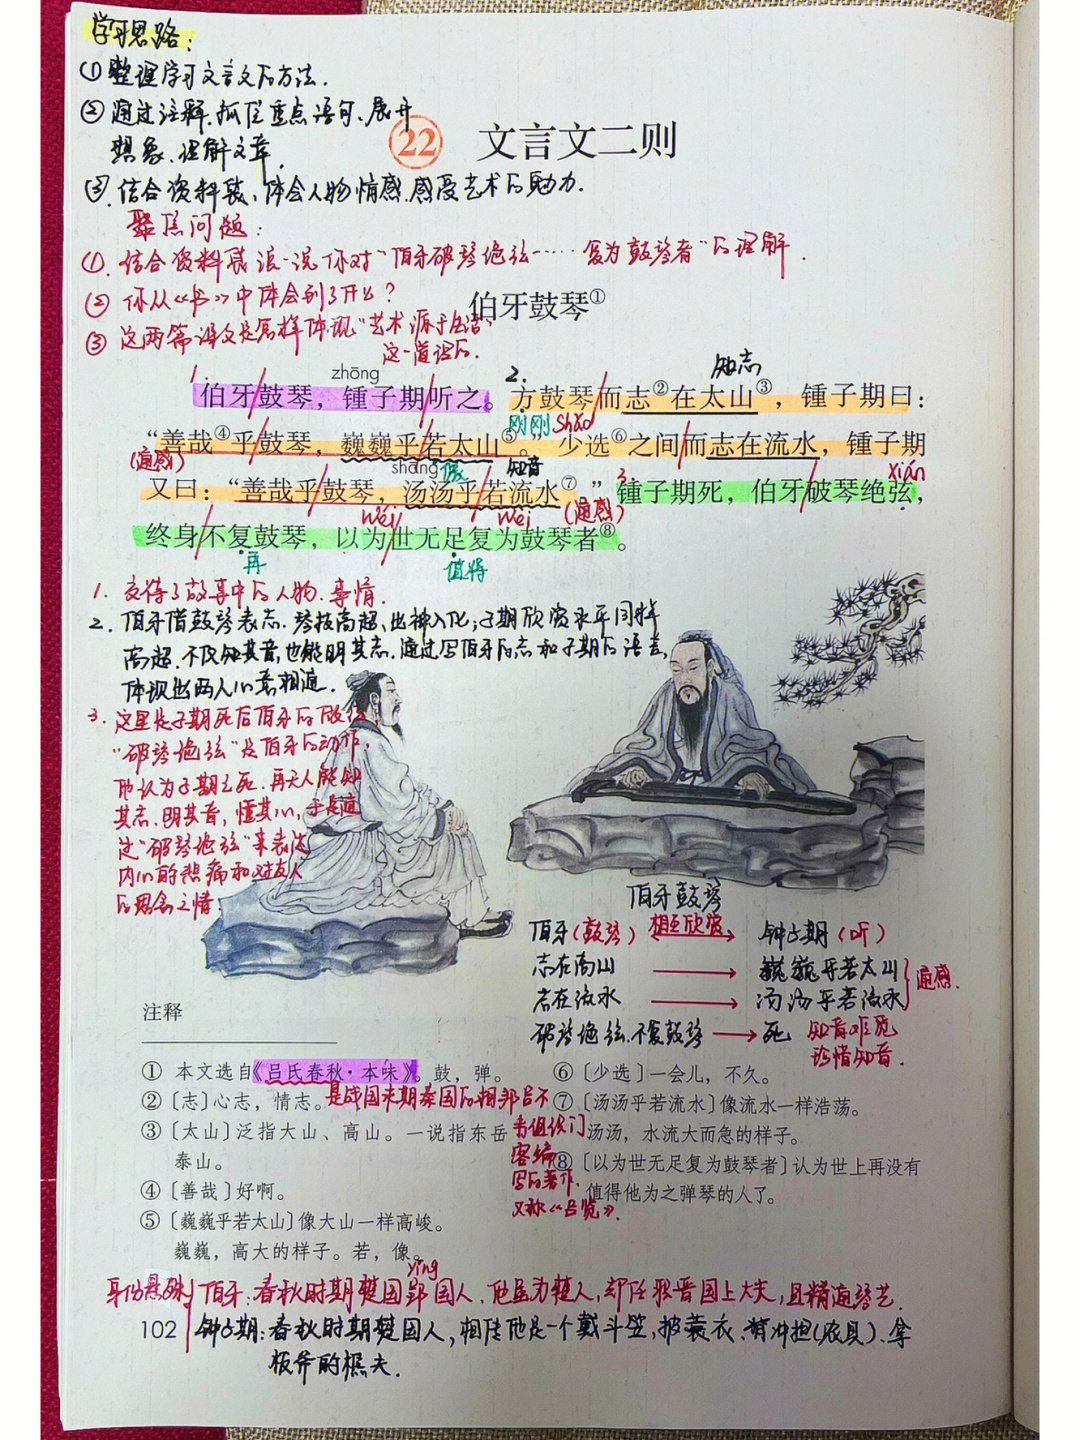 学习思路:
①整理学习文言文的方法.
②通过注释、抓住重点语句、展开
想象、理解文章.
③.结合资料袋、体会人物情感.感受艺术的魅力.
22 文言文二则
聚焦问题:
①.结合资料袋说一说你对“伯牙破琴绝弦……复为鼓琴者”的理解.
②你从《书》中体会到了什么?
③这两篇课文是怎样体现“艺术源于生活”
这一道理的.
伯牙鼓琴①
zhōng
知志
1.伯牙/鼓琴，锺子期/听之。2.方鼓琴/而志②在太山③，锺子期曰：
刚刚 shǎo
“善哉④乎/鼓琴，巍巍乎/若太山⑤。”少选⑥之间/而志在流水，锺子期
(通感) shāng 像 知音 xián
又曰：“善哉乎/鼓琴，汤汤乎/若流水⑦。”3.锺子期死，伯牙/破琴绝弦，
wéi wéi (通感)
终身/不复鼓琴，以为/世无足/复为鼓琴者⑧。
再 值得
1.交待了故事中的人物、事情.
2.伯牙借鼓琴表志.琴技高超、出神入化;子期欣赏水平同样
高超.不仅知其音,也能明其志.通过写伯牙的志和子期的语言,
体现出两人心意相通.
3.这里是子期死后伯牙的做法
“破琴绝弦”是伯牙的动作,
他认为子期已死.再无人能知
其志.明其音，懂其心,于是通
过“破琴绝弦”来表达
内心的悲痛和对友人
的思念之情.
伯牙鼓琴
伯牙(鼓琴) 相互欣赏 钟子期(听)
志在高山 巍巍乎若太山
志在流水 汤汤乎若流水
通感.
破琴绝弦.不复鼓琴 死 知音难觅
珍惜知音.
注释
① 本文选自《吕氏春秋·本味》。鼓，弹。
②〔志〕心志，情志。
是战国末期秦国的相邦吕不
韦组织门
客编
写的著作.
又称《吕览》.
③〔太山〕泛指大山、高山。一说指东岳
泰山。
④〔善哉〕好啊。
⑤〔巍巍乎若太山〕像大山一样高峻。
巍巍，高大的样子。若，像。
⑥〔少选〕一会儿，不久。
⑦〔汤汤乎若流水〕像流水一样浩荡。
汤汤，水流大而急的样子。
⑧〔以为世无足复为鼓琴者〕认为世上再没有
值得他为之弹琴的人了。
yǐng
身份悬殊 伯牙:春秋时期楚国郢国人.他虽为楚人,却任职晋国上大夫,且精通琴艺.
钟子期:春秋时期楚国人,相传他是一个戴斗笠,披蓑衣、背冲担(农具)、拿
板斧的樵夫.
102